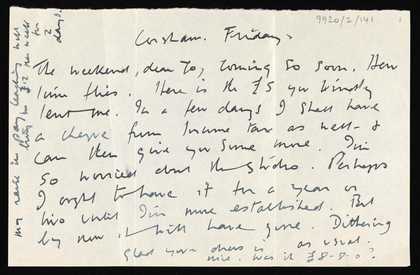 9920/2/141
Corsham. Friday.
The weekend, dear Jo, coming so soon. How
time flies. Here is the £5 you kindly
lent me. In a few days I shall have
a cheque from Income Tax as well - &
can then give you some more. I'm
so worried about the studio. Perhaps
I ought to have it for a year or
two until I'm more established. But
by now it will have gone. Dithering
as usual.
Glad your dress is
nice. Was it £8-8-0?
my raise in pay
£12 per week
for
2
days.